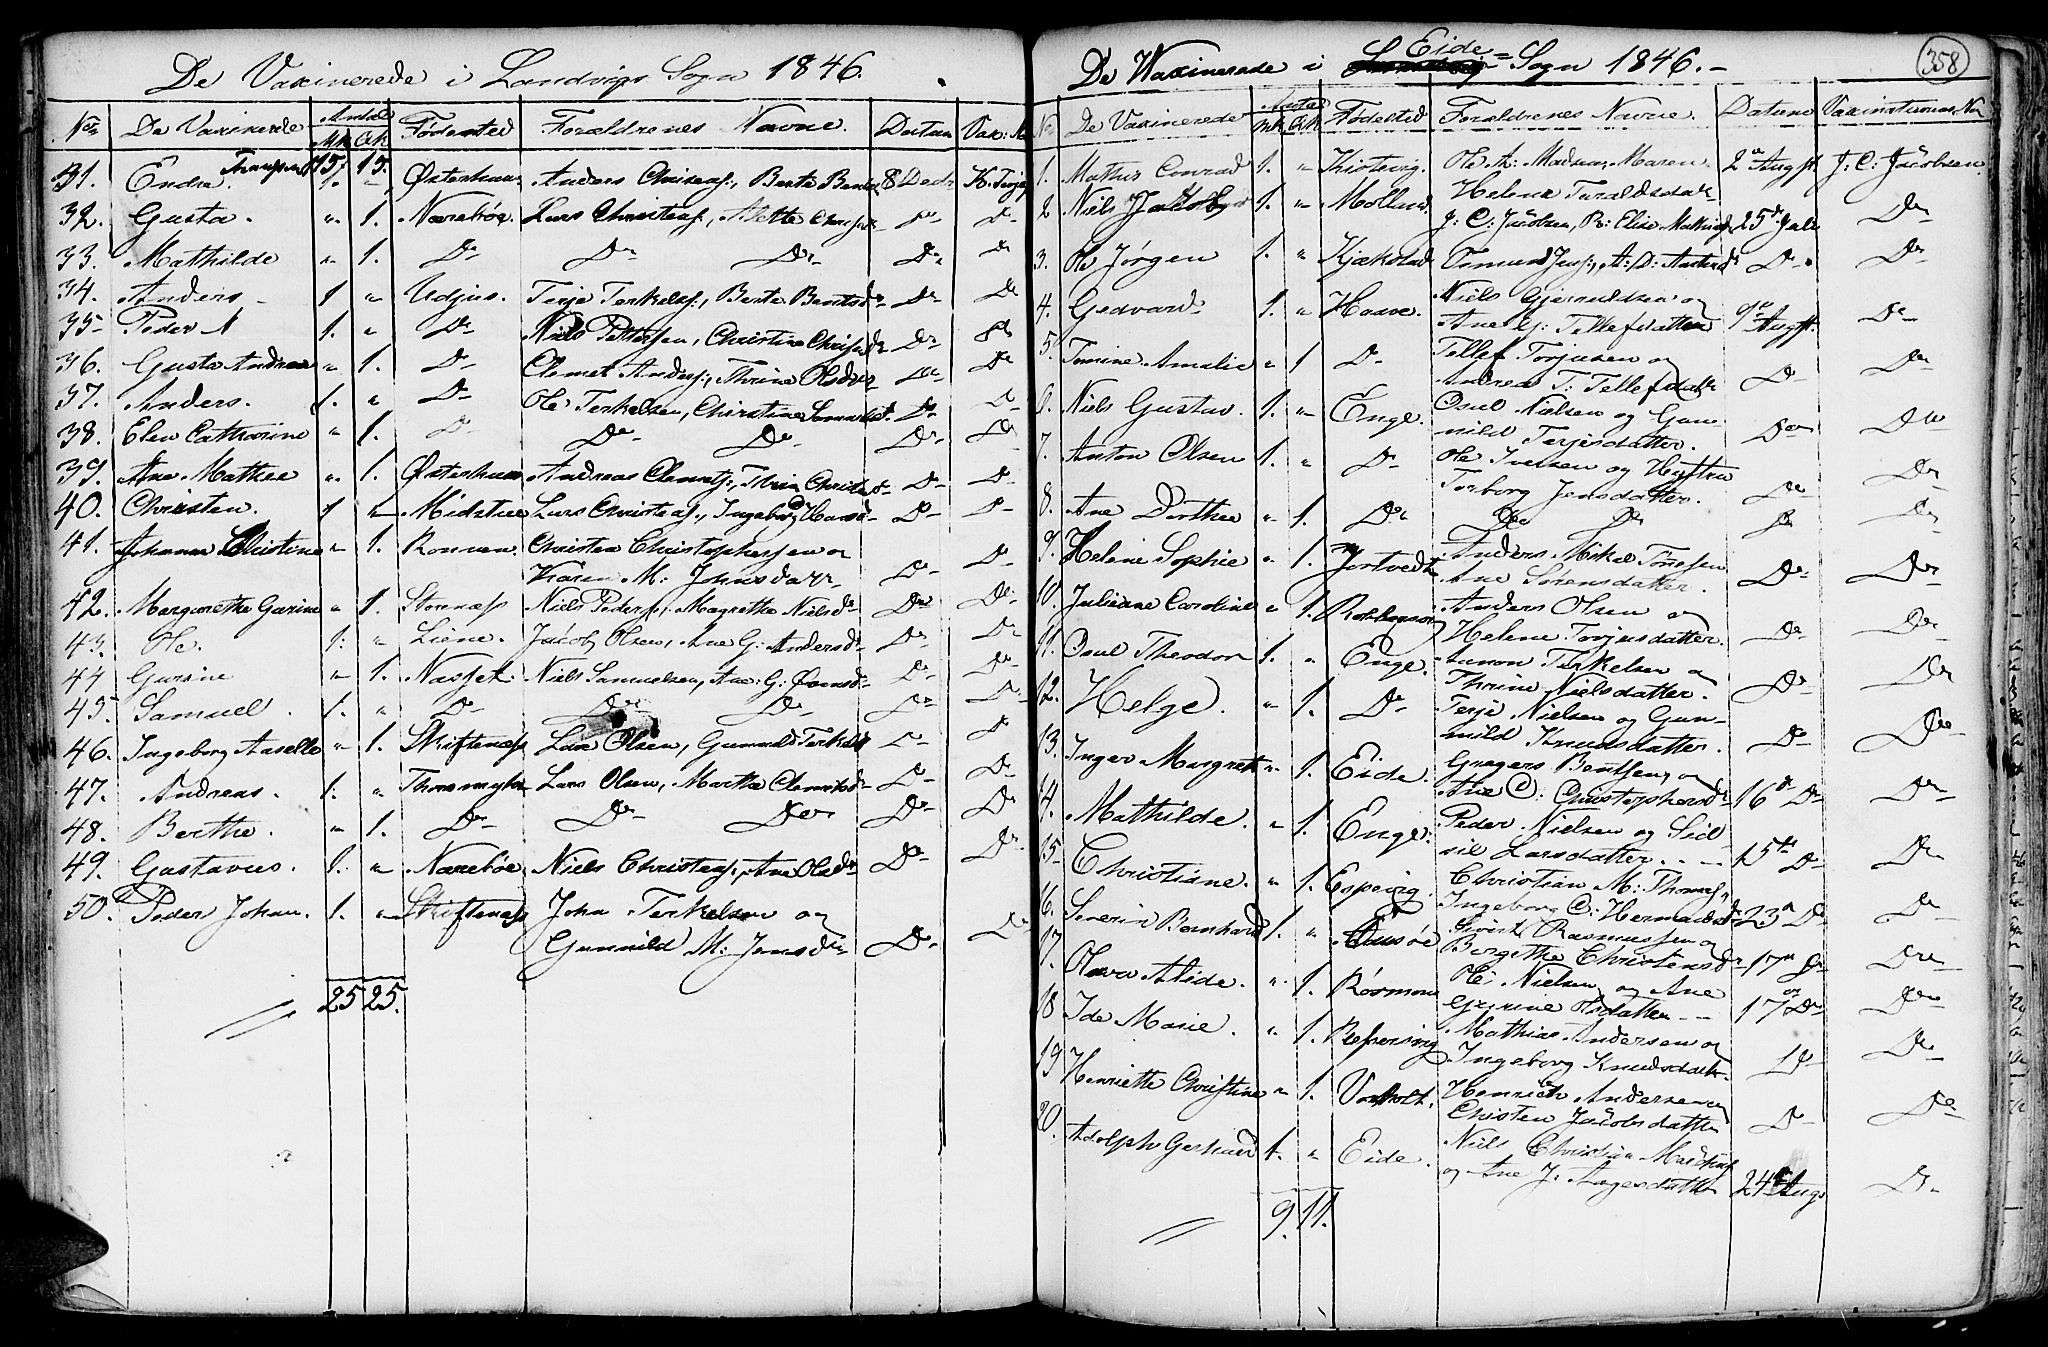 De Vaxinerede i Landvigs Sogn 1846.
No De Vaxinerede Antal Mk Qk Fødested Forældrenes Navne. Datum Vax: N
Transport 15. 15.
31. Endre 1. " Østerhuus Anders Chrisens:, Berte Bents 8 Decbr H. Terjes
32. Gusta. " 1. Narebøe. Lars Christens:, Mette Chrs D° D°
33. Mathilde " 1. D° D° D° D° D°
34. Anders 1 " Udjus. Terje Terkels:, Berte Bentsdr D° D°
35 Peder N 1. " D° Niels Pettersen, Christine Chrisdr D° D°
36. Gusta Andrea " 1. D° Clemet Anders:, Thrine Olsdr D° D°
37. Anders. 1. " D° Ole Terkelsen, Christine Samuelsd. D° D°
38. Elen Cathrine " 1. D° D° D° D° D°
39. Ane Mathea " 1. Østerhuus Andreas Clemets:, Thrine Christensd D° D°
40. Christen. 1 " Midstue Lars Christens:, Ingeborg Hansd D° D°
41. Johanne Christine " 1. Ronnen. Christen Christophersen og
Karen M: Johnsdatr D° D°
42. Margarethe Gurine " 1. Stornæss Niels Peders:, Magrethe Nielsdr D° D°
43. Ole. 1. " Liene. Jacob Olsen, Ane G: Andersdr D° D°
44 Gurine " 1. Nasset. Niels Samuelsen, Ane G: Jensdr D° D°
45. Samuel. 1. " D° D° D° D° D°
46. Ingeborg Aaselle " 1. Skiftenæss Lars Olsen, Gunnild Terkelsd D° D°
47. Andreas. 1. " Thorsmyhr Lars Olsen, Marthe Clemetsdr D° D°
48. Berthe. " 1. D° D° D° D° D°
49. Gustavus. 1. " Narebøe Niels Christens:, Ane Olsdr D° D°
50. Peder Johan. 1. " Skiftenæss John Terkelsen og
Gunnild M: Jensdr D° D°
25 25.
De Waxinerede i Eide Sogn 1846.
358
N De Vaxinerede Antal Mk Qk Fødested Forældrenes Navne. Datum Vaxinateurens Na
1. Mathis Conrad 1. " Kistevig. Ole A: Madsen, Maren
Helene Taraldsdatr 2 Augst J. C. Jacobsen
2 Niels Jakob 1. " Molland J: C: Jacobsen, B: Elise Mathisd 25 Juli D°
3. Ole Jørgen 1. " Kjækstad Osmund Jens:, A: D: Andersdr D° D°
4. Gedvard 1. " Haave. Niels Gjeruldsen og
Ane G: Tellefdatter 9 Augst. D°
5. Tomine Amalie " 1 D° Tellef Torjusen og
Andrea T: Tellefdatr D° D°
6. Niels Gustav. 1. " Enge. Osul Nielsen og Gun
nild Terjesdatter. D° D°
7. Anton Olsen 1. " D° Ole Iversen og Hustru
Torborg Jensdatter. D° D°
8. Ane Dorthea " 1. D° D° D° D° D°
9. Helene Sophie " 1. Hortvedt Anders Mikel Tønesen
Ane Sørensdatter. D° D°
10. Juliane Caroline " 1. Anders Olsen og
Helene Torjusdatter. D° D°
11. Osul Theodor 1. " Enge. Aanon Terkelsen og
Thrine Nielsdatter. D° D°
12. Helge. " 1. D° Terje Nielsen og Gun-
nild Knudsdatter. D° D°
13. Inger Margreth " 1. Eide. Gregers Bentsen, og
Ane C: Christophersdr 16 D° D°
14. Mathilde. " 1. Enge. Peder Nielsen og Sid
sil Larsdatter. 15 D° D°
15 Christiane. " 1. Espevig. Christian M: Thomes
Ingeborg C: Hermansdr 23 D° D°
16. Severin Bernhard 1. " Rasmussen og
Bergithe Christensdr 17 D° D°
17. Olava Alide. " 1. Rosmone Ole Nielsen og Ane
Gurine Olsdatter 17 D° D°
18 Ide Marie. " 1. Ressevig Mathias Andersen og
Ingeborg Knudsdatr D° D°
19 Henriette Christine " 1. Vasholt. Henrich Andersen og
Christen Jacobsdatter D° D°
20. Adolph Gerhard 1. " Eide. Niels Christian Mads
og Ane J. Aagesdatter 24 Augs D°
9. 11.